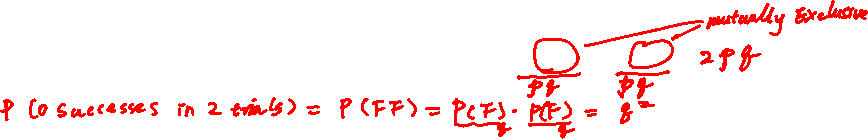 mutually Exclusive
pq pq 2pq
P (0 successes in 2 trials) = P(FF) = P(F) · P(F) = q²
q q